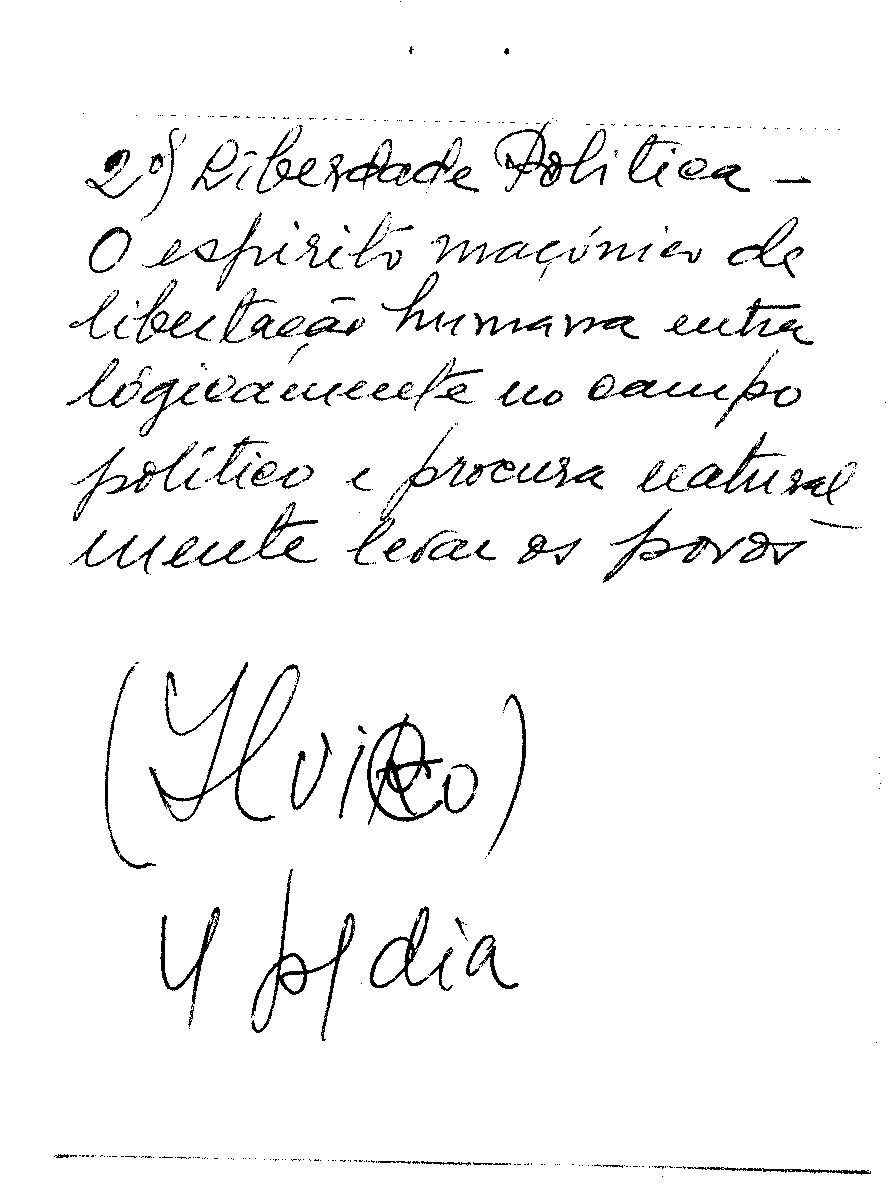 2º) Liberdade Politica –
O espirito maçónico de
libertação humana entra
lógicamente no campo
político e procura natural
mente levar os povos
4 p/ dia